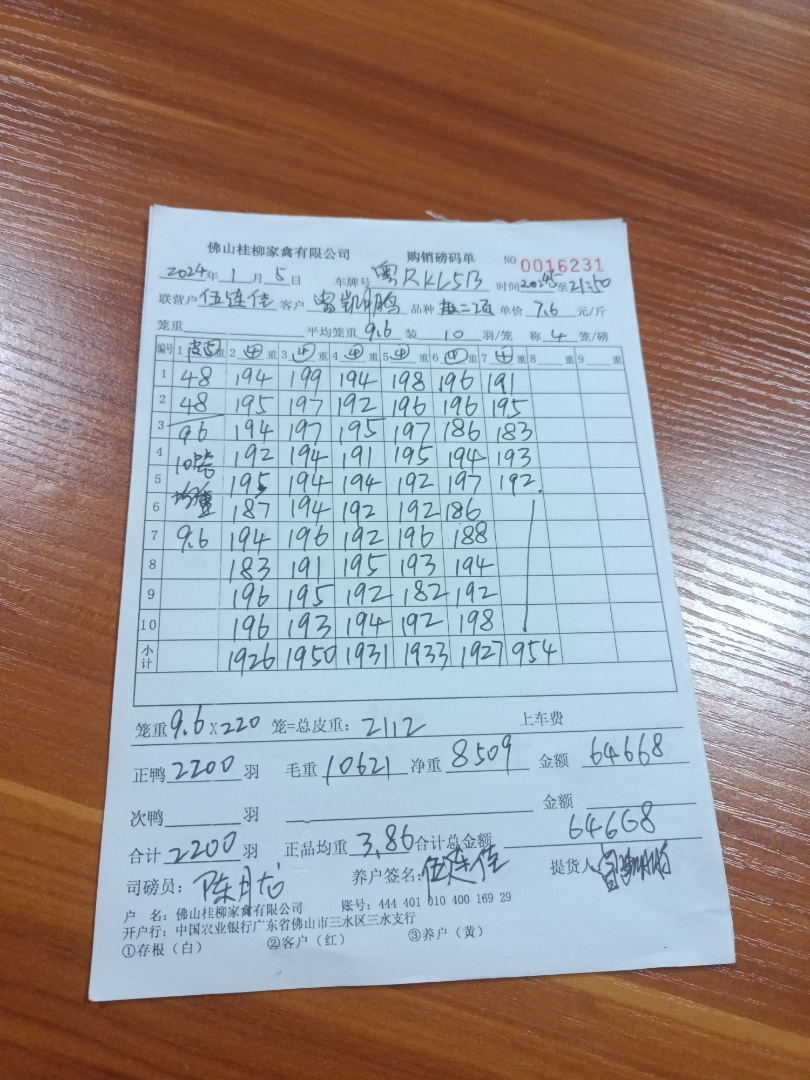 佛山桂柳家禽有限公司 购销磅码单 NO 0016231
2024年1月5日 车牌号粤RKL5B 时间 至21:50
联营户伍连佳 客户 品种 单价7.6元/斤
笼重 平均笼重9.6 装10羽/笼 称4笼/磅
编号 1 皮重 2 重 3 重 4 重 5 重 6 重 7 重 8 重 9 重
1 48 194 199 194 198 196 191
2 48 195 197 192 196 196 195
3 96 194 197 195 197 186 183
4 10笼 192 194 191 195 194 193
5 均重 195 194 194 192 197 192
6 187 194 192 192 186
7 9.6 194 196 192 196 188
8 183 191 195 193 194
9 196 195 192 182 192
10 196 193 194 192 198
小计 1926 1950 1931 1933 1927 954
笼重9.6×220笼=总皮重:2112 上车费
正鸭2200羽 毛重10621净重8509 金额64668
次鸭 羽 金额
合计2200羽 正品均重3.86合计总金额64668
司磅员:陈月 养户签名:伍连佳 提货人
户 名:佛山桂柳家禽有限公司 账号:444 401 010 400 169 29
开户行:中国农业银行广东省佛山市三水区三水支行
①存根(白) ②客户(红) ③养户(黄)